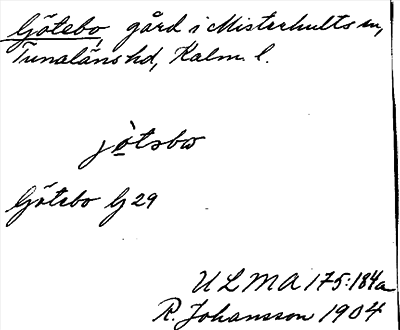 Götebo, gård i Misterhults sn,
Tunaläns hd, Kalm. l.
jò̲tsbω
Götebo G 29
ULMA 175:184a
R. Johansson 1904